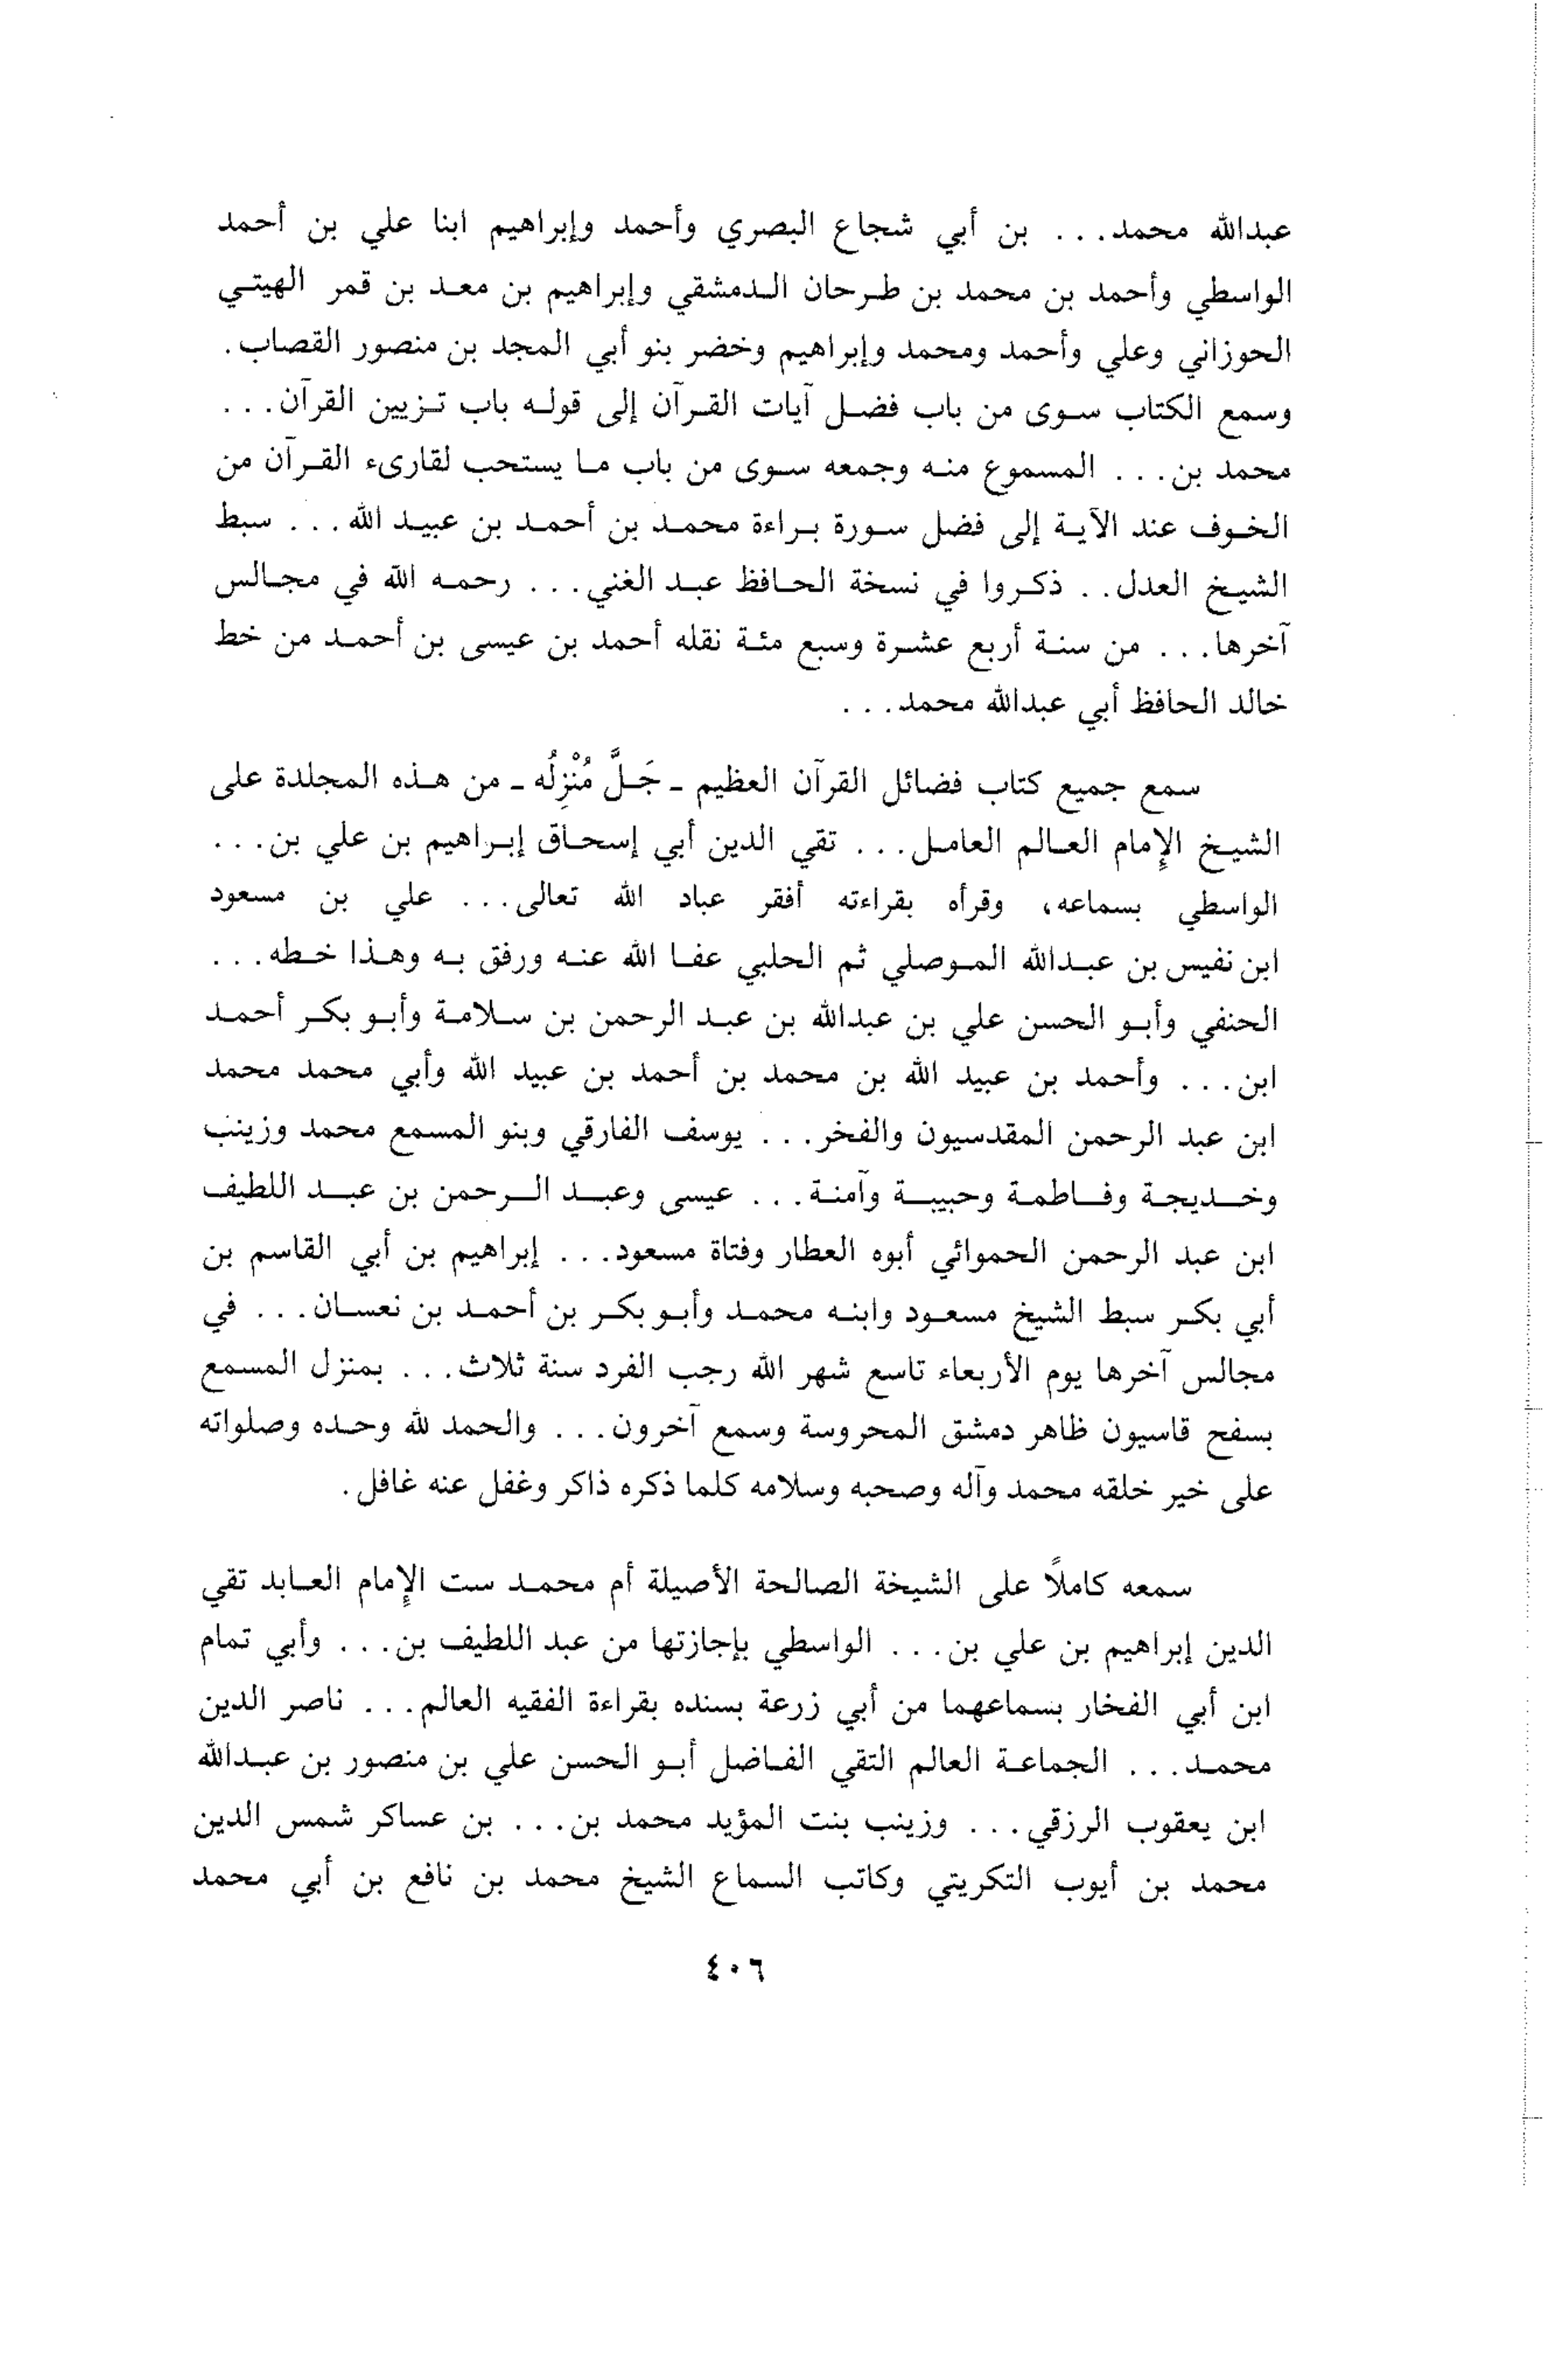 عبدالله محمد... بن أبي شجاع البصري وأحمد وإبراهيم ابنا علي بن أحمد
الواسطي وأحمد بن محمد بن طرحان الدمشقي وإبراهيم بن معد بن قمر الهيتي
الحوزاني وعلي وأحمد ومحمد وإبراهيم وخضر بنو أبي المجد بن منصور القصاب.
وسمع الكتاب سوى من باب فضل آيات القرآن إلى قوله باب تزيين القرآن...
محمد بن... المسموع منه وجمعه سوى من باب ما يستحب لقارىء القرآن من
الخوف عند الآية إلى فضل سورة براءة محمد بن أحمد بن عبيد الله... سبط
الشيخ العدل.. ذكروا في نسخة الحافظ عبد الغني... رحمه الله في مجالس
آخرها... من سنة أربع عشرة وسبع مئة نقله أحمد بن عيسى بن أحمد من خط
خالد الحافظ أبي عبدالله محمد...
سمع جميع كتاب فضائل القرآن العظيم - جَلَّ مُنْزِلُه - من هذه المجلدة على
الشيخ الإمام العالم العامل... تقي الدين أبي إسحاق إبراهيم بن علي بن...
الواسطي بسماعه، وقرأه بقراءته أفقر عباد الله تعالى... علي بن مسعود
ابن نفيس بن عبدالله الموصلي ثم الحلبي عفا الله عنه ورفق به وهذا خطه...
الحنفي وأبو الحسن علي بن عبدالله بن عبد الرحمن بن سلامة وأبو بكر أحمد
ابن... وأحمد بن عبيد الله بن محمد بن أحمد بن عبيد الله وأبي محمد محمد
ابن عبد الرحمن المقدسيون والفخر... يوسف الفارقي وبنو المسمع محمد وزينب
وخديجة وفاطمة وحبيبة وآمنة... عيسى وعبد الرحمن بن عبد اللطيف
ابن عبد الرحمن الحموائي أبوه العطار وفتاة مسعود... إبراهيم بن أبي القاسم بن
أبي بكر سبط الشيخ مسعود وابنه محمد وأبو بكر بن أحمد بن نعسان... في
مجالس آخرها يوم الأربعاء تاسع شهر الله رجب الفرد سنة ثلاث... بمنزل المسمع
بسفح قاسيون ظاهر دمشق المحروسة وسمع آخرون... والحمد لله وحده وصلواته
على خير خلقه محمد وآله وصحبه وسلامه كلما ذكره ذاكر وغفل عنه غافل.
سمعه كاملاً على الشيخة الصالحة الأصيلة أم محمد ست الإمام العابد تقي
الدين إبراهيم بن علي بن... الواسطي بإجازتها من عبد اللطيف بن... وأبي تمام
ابن أبي الفخار بسماعهما من أبي زرعة بسنده بقراءة الفقيه العالم... ناصر الدين
محمد... الجماعة العالم التقي الفاضل أبو الحسن علي بن منصور بن عبدالله
ابن يعقوب الرزقي... وزينب بنت المؤيد محمد بن... بن عساكر شمس الدين
محمد بن أيوب التكريتي وكاتب السماع الشيخ محمد بن نافع بن أبي محمد
٤٠٦